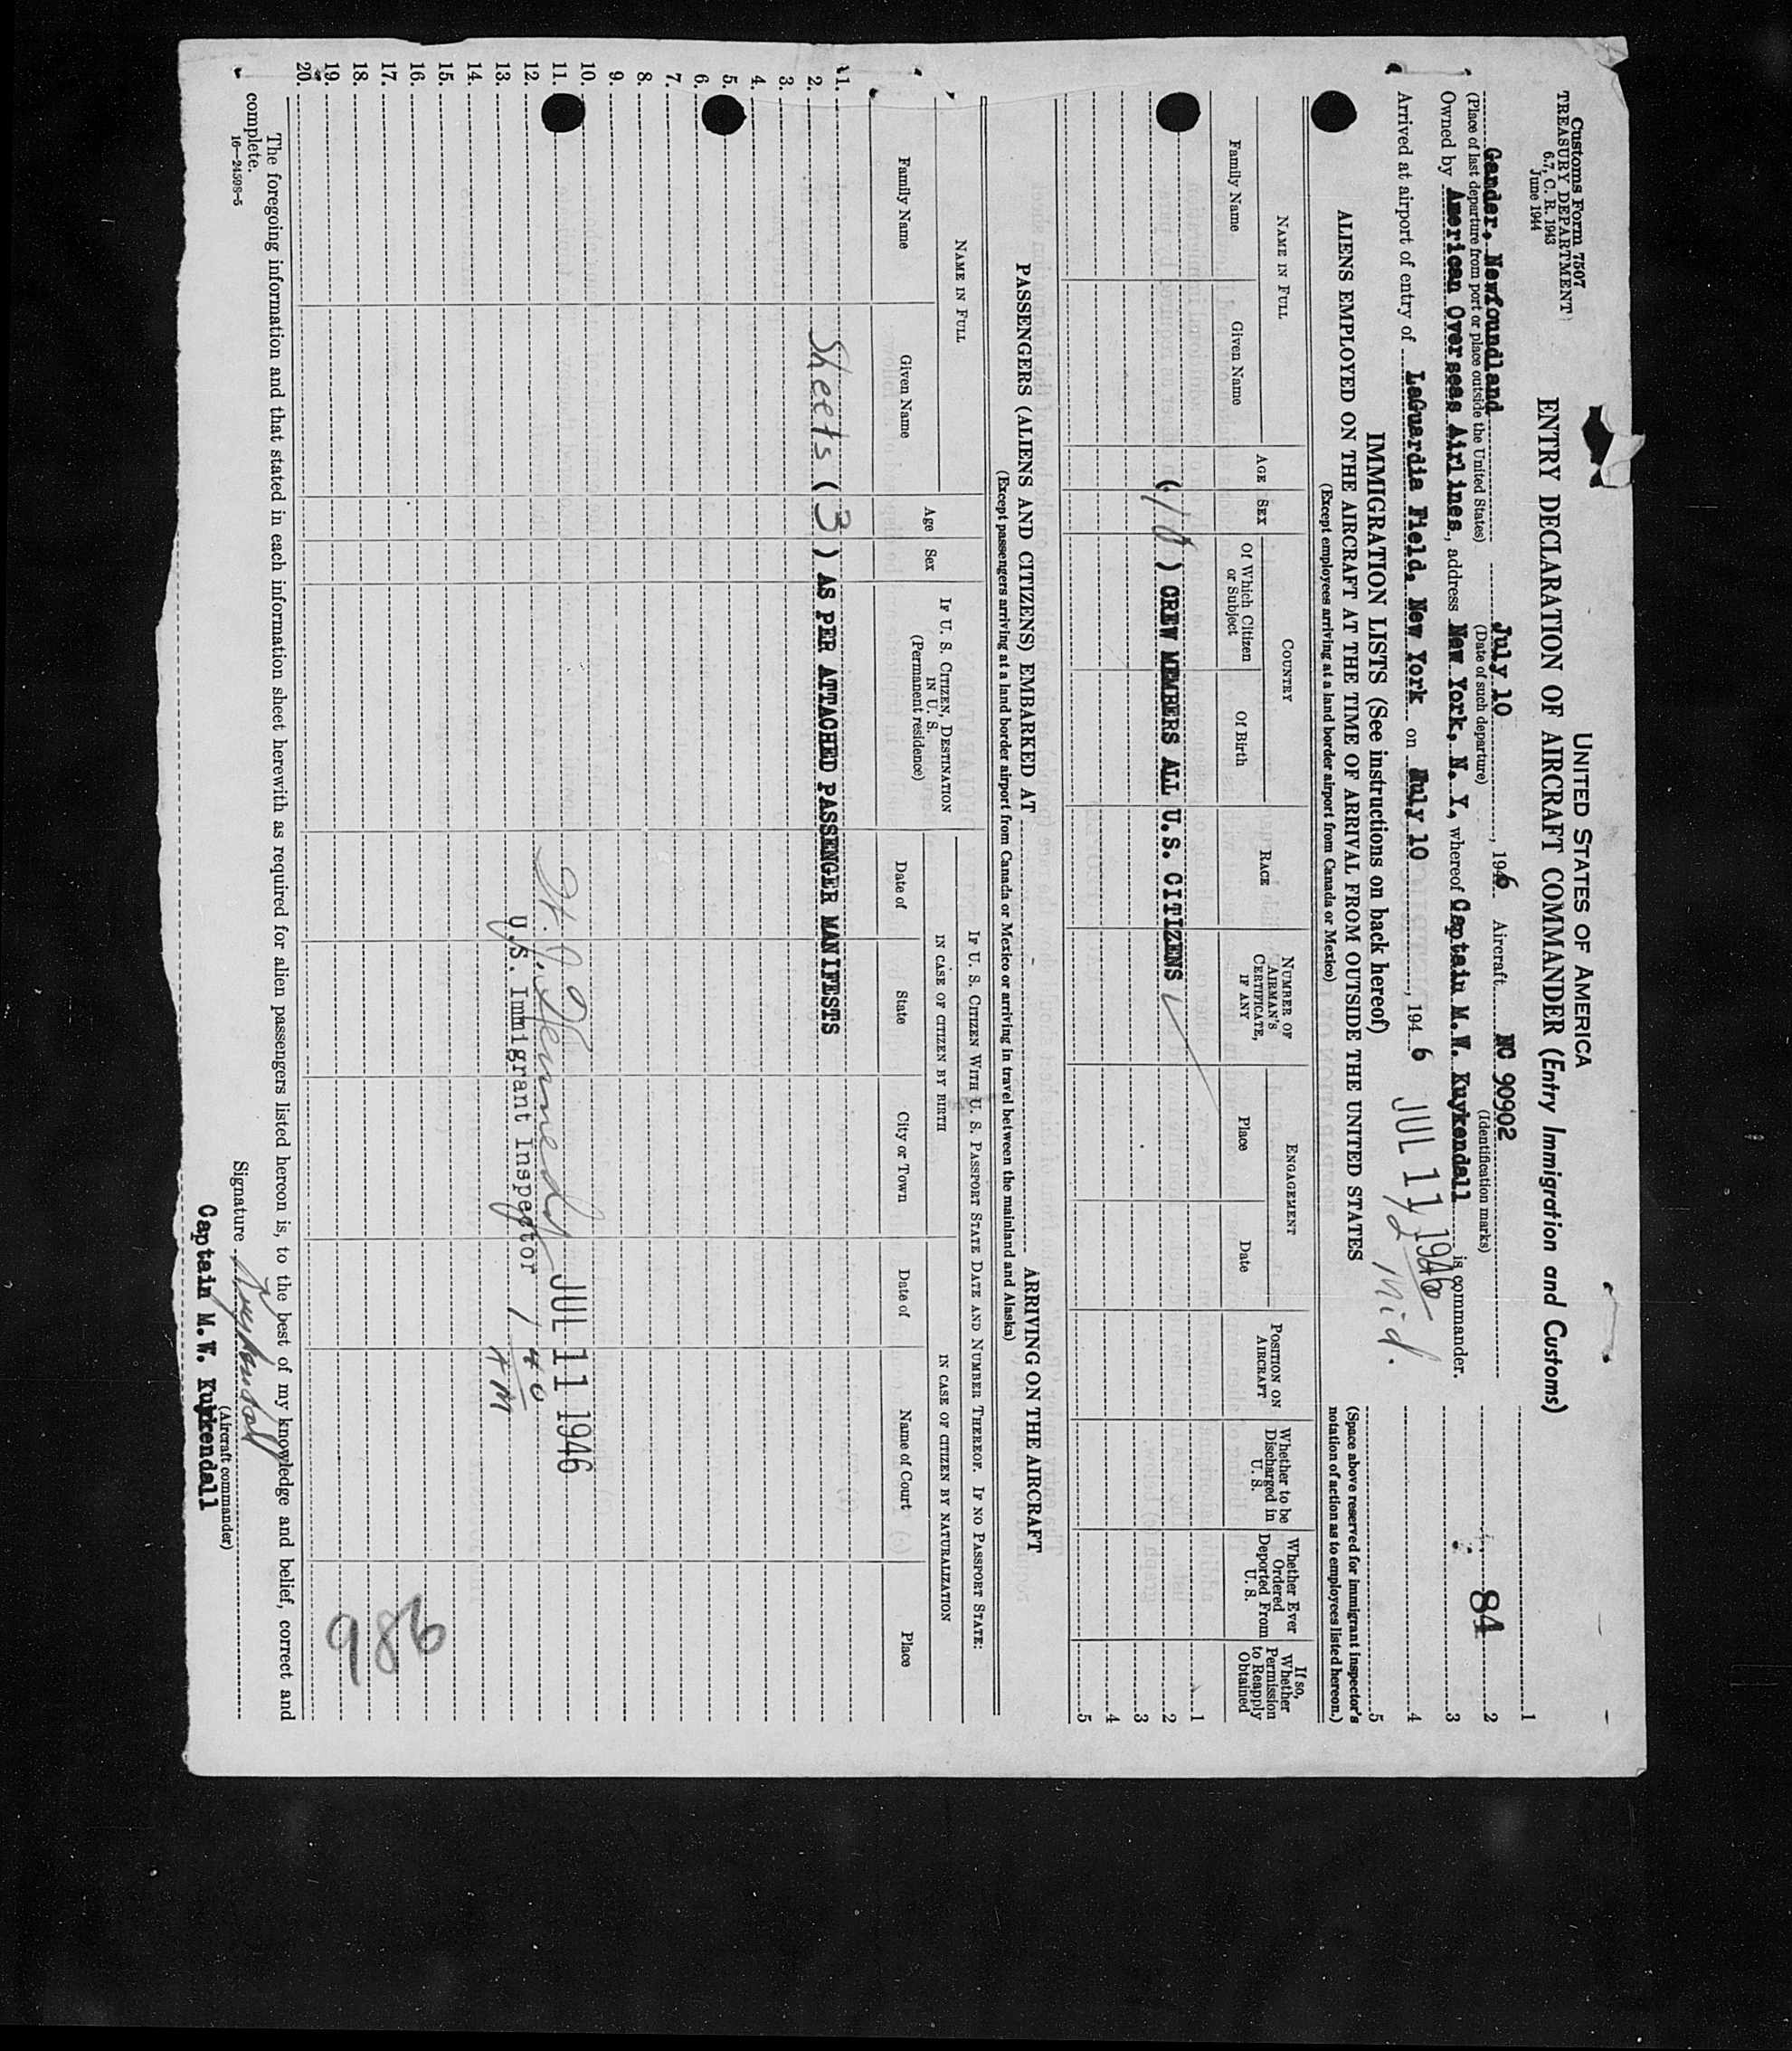 Customs Form 7507
TREASURY DEPARTMENT
6.7, C. R. 1943
June 1944
UNITED STATES OF AMERICA
ENTRY DECLARATION OF AIRCRAFT COMMANDER (Entry Immigration and Customs)
Gander, Newfoundland July 10, 1946 Aircraft NC 90902
(Place of last departure from port or place outside the United States) (Date of such departure) (Identification marks)
Owned by American Overseas Airlines, address New York, N. Y. whereof Captain M.W. Kuykendall is commander.
Arrived at airport of entry of LaGuardia Field, New York on July 10, 1946
JUL 11 1946
12 Mid.
84
1
2
3
4
5
IMMIGRATION LISTS (See instructions on back hereof)
ALIENS EMPLOYED ON THE AIRCRAFT AT THE TIME OF ARRIVAL FROM OUTSIDE THE UNITED STATES
(Except employees arriving at a land border airport from Canada or Mexico)
(Space above reserved for immigrant inspector's
notation of action as to employees listed hereon.)
NAME IN FULL
Family Name
Given Name
AGE
SEX
COUNTRY
Of Which Citizen
or Subject
Of Birth
RACE
NUMBER OF
AIRMAN'S
CERTIFICATE,
IF ANY
ENGAGEMENT
Place
Date
POSITION ON
AIRCRAFT
Whether to be
Discharged in
U. S.
Whether Ever
Ordered
Deported From
U. S.
If so,
Whether
Permission
to Reapply
Obtained
1
(10) CREW MEMBERS ALL U.S. CITIZENS 2
3
4
5
PASSENGERS (ALIENS AND CITIZENS) EMBARKED AT ARRIVING ON THE AIRCRAFT
(Except passengers arriving at a land border airport from Canada or Mexico or arriving in travel between the mainland and Alaska)
NAME IN FULL
Family Name
Given Name
Age
Sex
IF U. S. CITIZEN, DESTINATION
IN U. S.
(Permanent residence)
IF U. S. CITIZEN WITH U. S. PASSPORT STATE DATE AND NUMBER THEREOF. IF NO PASSPORT STATE:
IN CASE OF CITIZEN BY BIRTH
IN CASE OF CITIZEN BY NATURALIZATION
Date of
State
City or Town
Date of
Name of Court
Place
1.
2. Sheets (3) AS PER ATTACHED PASSENGER MANIFESTS
3.
4.
5.
6.
7.
8.
9.
10.
11. JUL 11 1946
12.
13. U.S. Immigrant Inspector 1 40 AM
14.
15.
16.
17.
18.
19.
20.
986
The foregoing information and that stated in each information sheet herewith as required for alien passengers listed hereon is, to the best of my knowledge and belief, correct and
complete.
16—24598-5
Signature Kuykendall
(Aircraft commander)
Captain M.W. Kuykendall